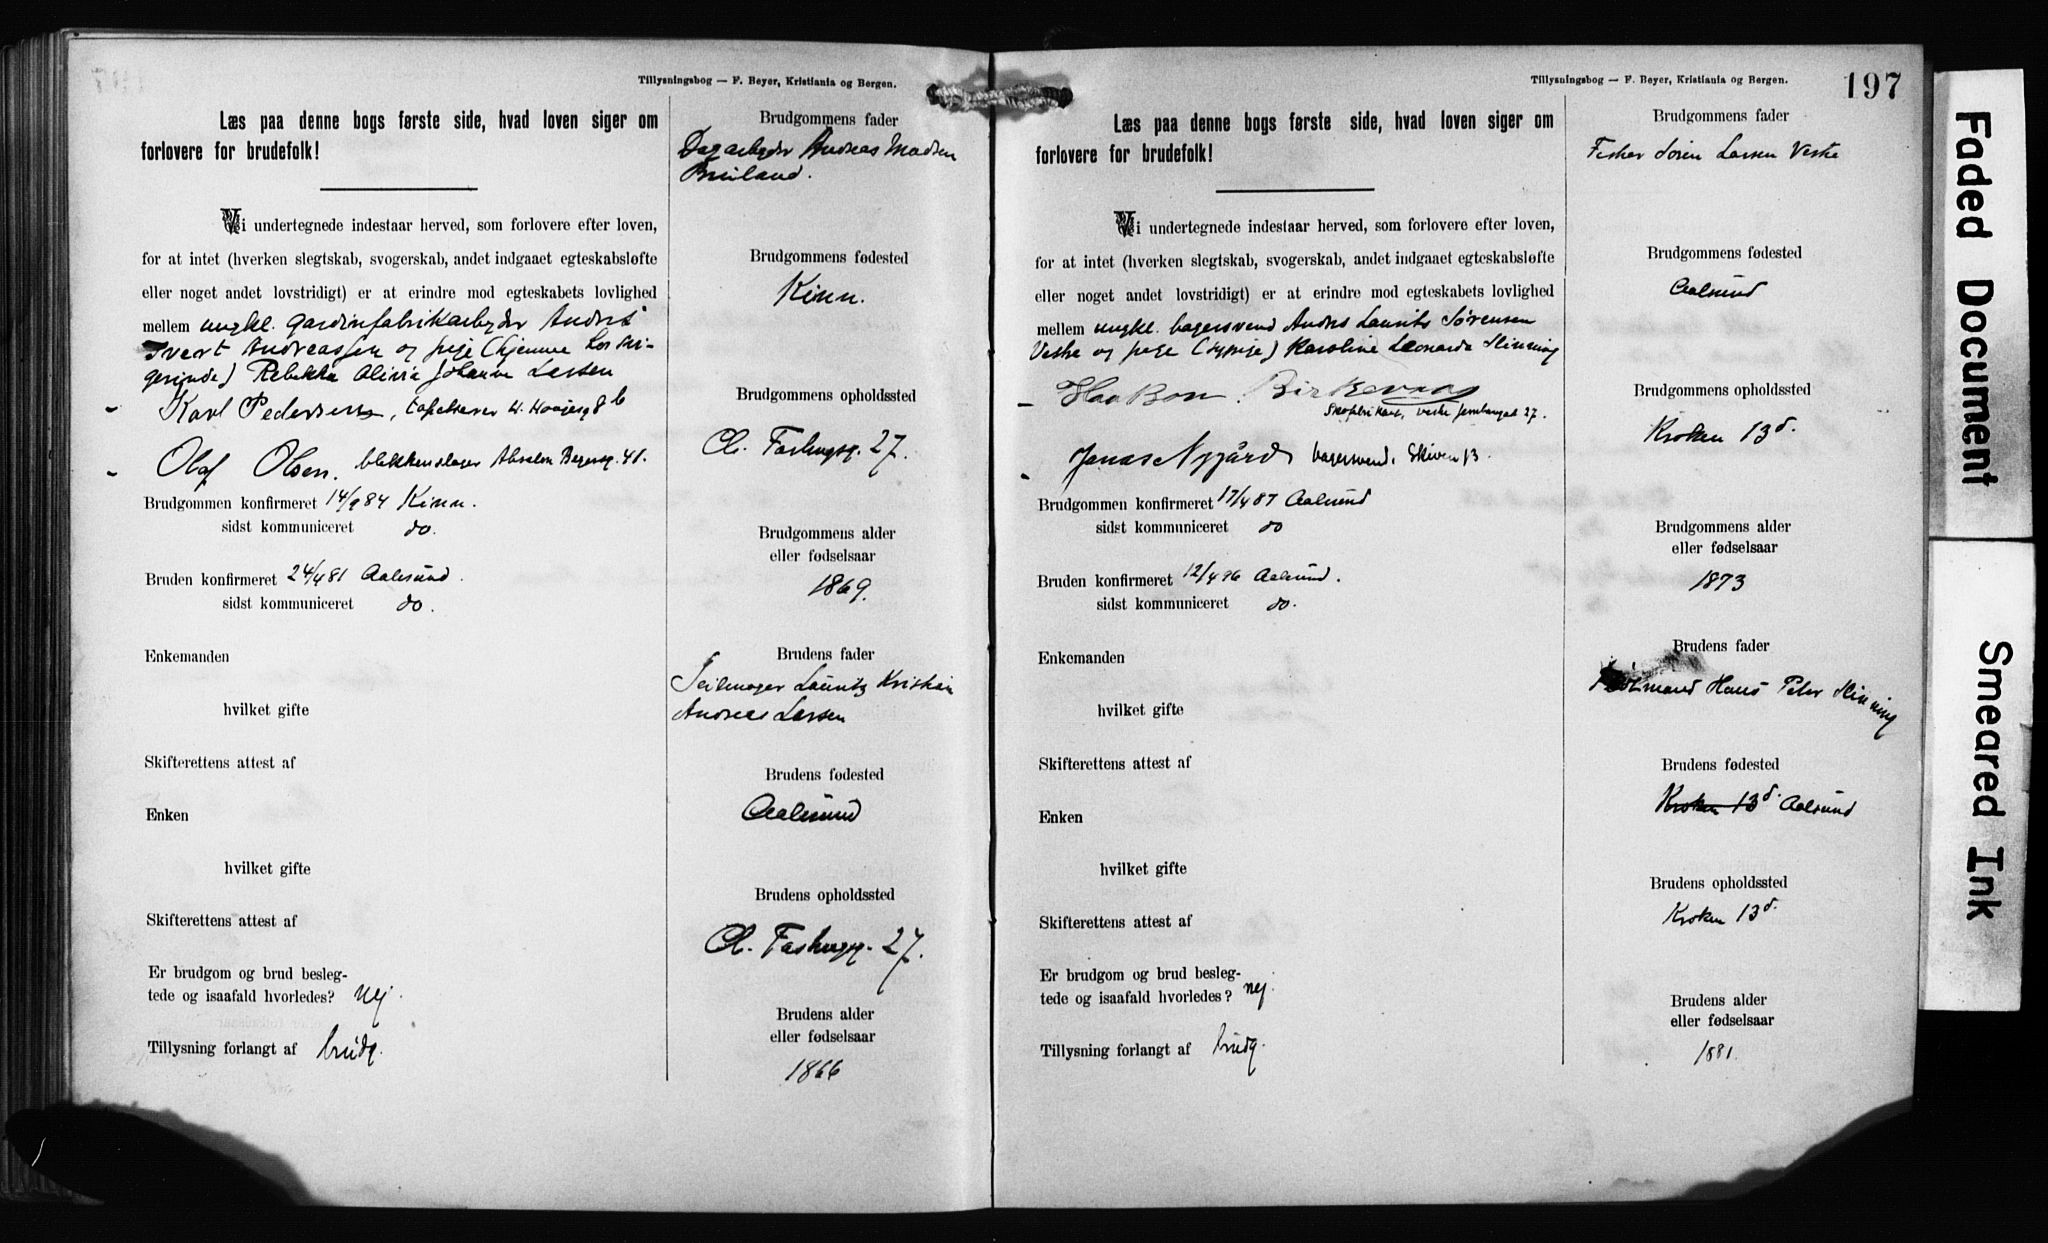 Tillysningsbog — F. Beyer, Kristiania og Bergen.
Læs paa denne bogs første side, hvad loven siger om
forlovere for brudefolk!
Vi undertegnede indestaar herved, som forlovere efter loven,
for at intet (hverken slegtskab, svogerskab, andet indgaaet egteskabsløfte
eller noget andet lovstridigt) er at erindre mod egteskabets lovlighed
mellem ungkl. gardinfabrikarbejder Andreas
Ivert Andreassen og pige (hjemme
gerinde) Rebekka Olivia Johanne Larsen
Karl Pedersen, tapetserer
Olaf Olsen. blikkenslager Absalon Beyersg. 41.
Brudgommen konfirmeret 14/9 84 Kinn.
sidst kommuniceret do.
Bruden konfirmeret 24/4 81 Aalesund.
sidst kommuniceret do.
Enkemanden
hvilket gifte
Skifterettens attest af
Enken
hvilket gifte
Skifterettens attest af
Er brudgom og brud besleg-
tede og isaafald hvorledes? nej.
Tillysning forlangt af brudg.
Brudgommens fader
Dagarbejder Andreas Madsen
Breiland.
Brudgommens fødested
Kinn.
Brudgommens opholdssted
27.
Brudgommens alder
eller fødselsaar
1869.
Brudens fader
Seilmager Lauritz Kristian
Andreas Larsen
Brudens fødested
Aalesund
Brudens opholdssted
27.
Brudens alder
eller fødselsaar
1866
Tillysningsbog — F. Beyer, Kristiania og Bergen.
197
Læs paa denne bogs første side, hvad loven siger om
forlovere for brudefolk!
Vi undertegnede indestaar herved, som forlovere efter loven,
for at intet (hverken slegtskab, svogerskab, andet indgaaet egteskabsløfte
eller noget andet lovstridigt) er at erindre mod egteskabets lovlighed
mellem ungkl. bagersvend Andres Laurits Sørensen
Veske og pige (sypige) Karoline Leonarda Slinning
Haakon
27.
Jonas Nygård bagersvend, Skiven 13.
Brudgommen konfirmeret 17/4 87 Aalesund
sidst kommuniceret do
Bruden konfirmeret 12/4 96 Aalesund.
sidst kommuniceret do.
Enkemanden
hvilket gifte
Skifterettens attest af
Enken
hvilket gifte
Skifterettens attest af
Er brudgom og brud besleg-
tede og isaafald hvorledes? nej.
Tillysning forlangt af brudg.
Brudgommens fader
Fisker Søren Larsen Veske
Brudgommens fødested
Aalesund
Brudgommens opholdssted
Kroken 13d.
Brudgommens alder
eller fødselsaar
1873
Brudens fader
Hans Peter Slinning
Brudens fødested
Kroken 13d. Aalesund
Brudens opholdssted
Kroken 13d.
Brudens alder
eller fødselsaar
1881.
Faded Document
Smeared Ink